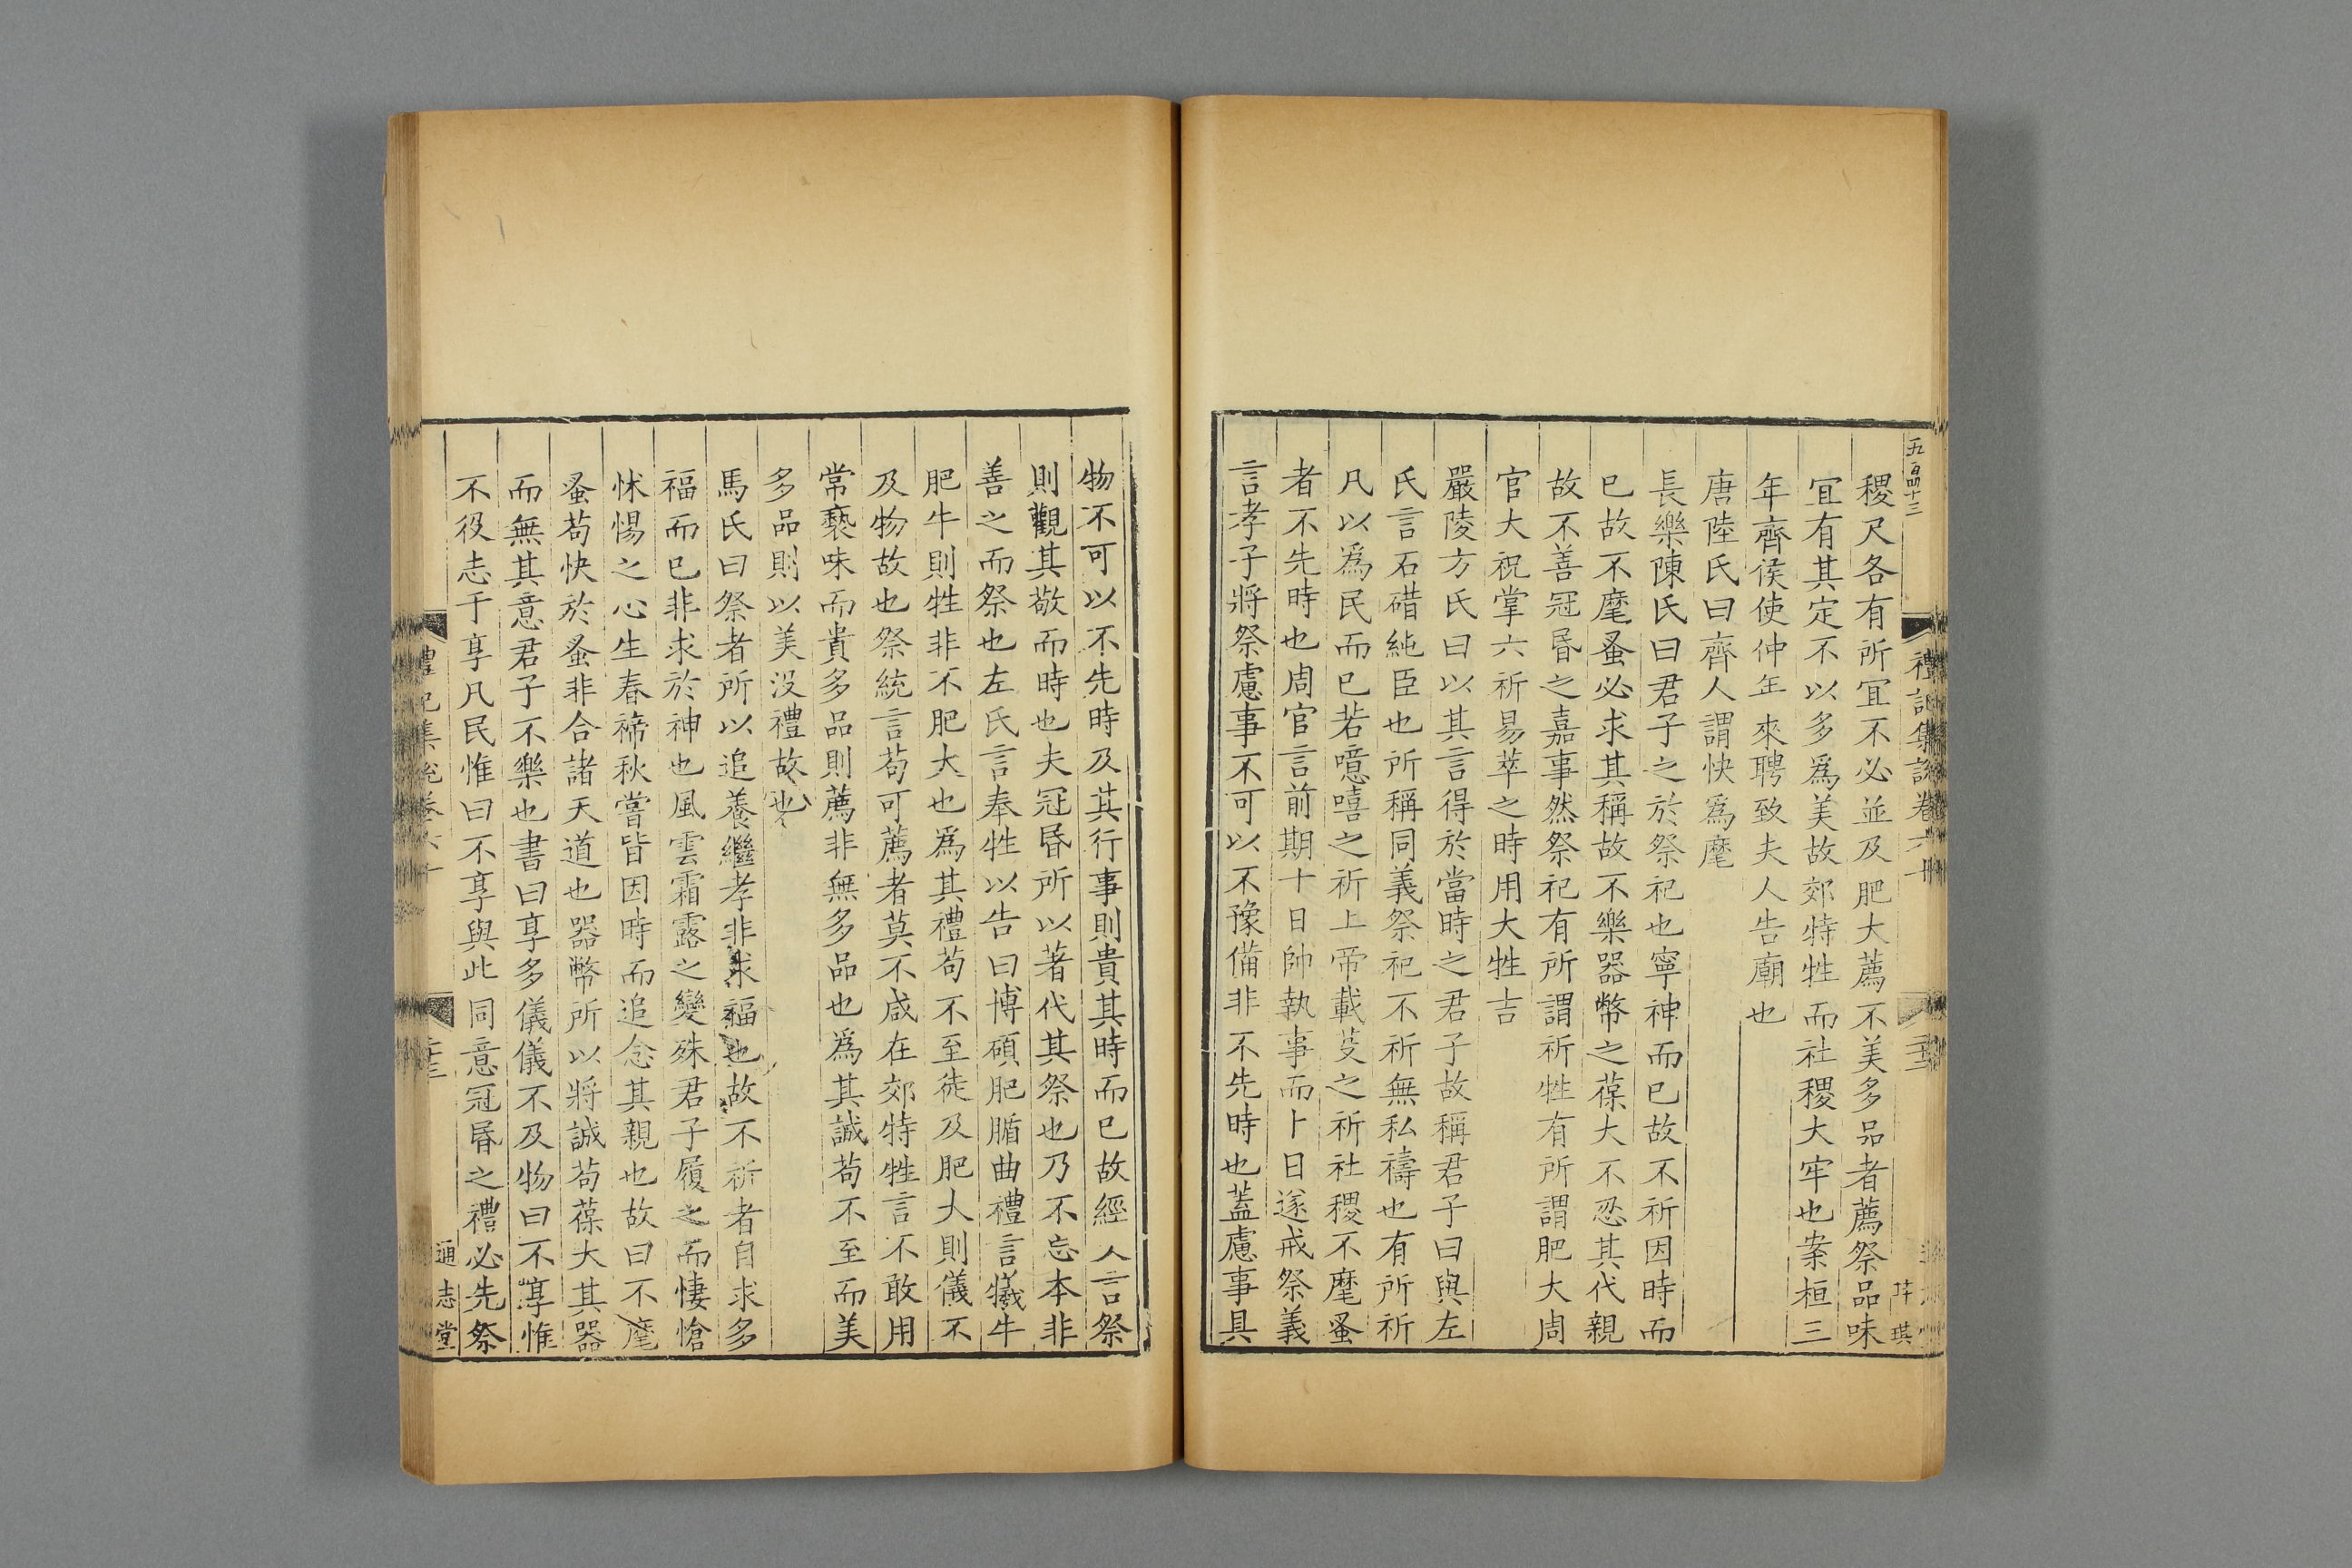 五百四十三
禮記集說卷六十
稷尺各有所宜不必並及肥大薦不美多品者薦祭品味
宜有其定不以多為美故郊特牲而社稷大牢也案桓三
年齊侯使仲年來聘致夫人告廟也
唐陸氏曰齊人謂快為麾
長樂陳氏曰君子之於祭祀也寧神而已故不祈因時而
已故不麾蚤必求其稱故不樂器幣之葆大不忍其代親
故不善冠昬之嘉事然祭祀有所謂祈牲有所謂肥大周
官大祝掌六祈易萃之時用大牲吉
嚴陵方氏曰以其言得於當時之君子故稱君子曰與左
氏言石碏純臣也所稱同義祭祀不祈無私禱也有所祈
凡以為民而已若噫嘻之祈上帝載芟之祈社稷不麾蚤
者不先時也周官言前期十日帥執事而卜日遂戒祭義
言孝子將祭慮事不可以不豫備非不先時也蓋慮事具
物不可以不先時及其行事則貴其時而已故經人言祭
則觀其敬而時也夫冠昬所以著代其祭也乃不忘本非
善之而祭也左氏言奉牲以告曰博碩肥腯曲禮言犧牛
肥牛則牲非不肥大也為其禮苟不至徒及肥大則儀不
及物故也祭統言苟可薦者莫不咸在郊特牲言不敢用
常褻味而貴多品則薦非無多品也為其誠苟不至而美
多品則以美沒禮故也
馬氏曰祭者所以追養繼孝非求福也故不祈者自求多
福而已非求於神也風雲霜露之變殊君子履之而悽愴
怵惕之心生春禘秋嘗皆因時而追念其親也故曰不麾
蚤苟快於蚤非合諸天道也器幣所以將誠苟葆大其器
而無其意君子不樂也書曰享多儀儀不及物曰不享惟
不役志于享凡民惟曰不享與此同意冠昬之禮必先祭
禮記集說卷六十
通志堂